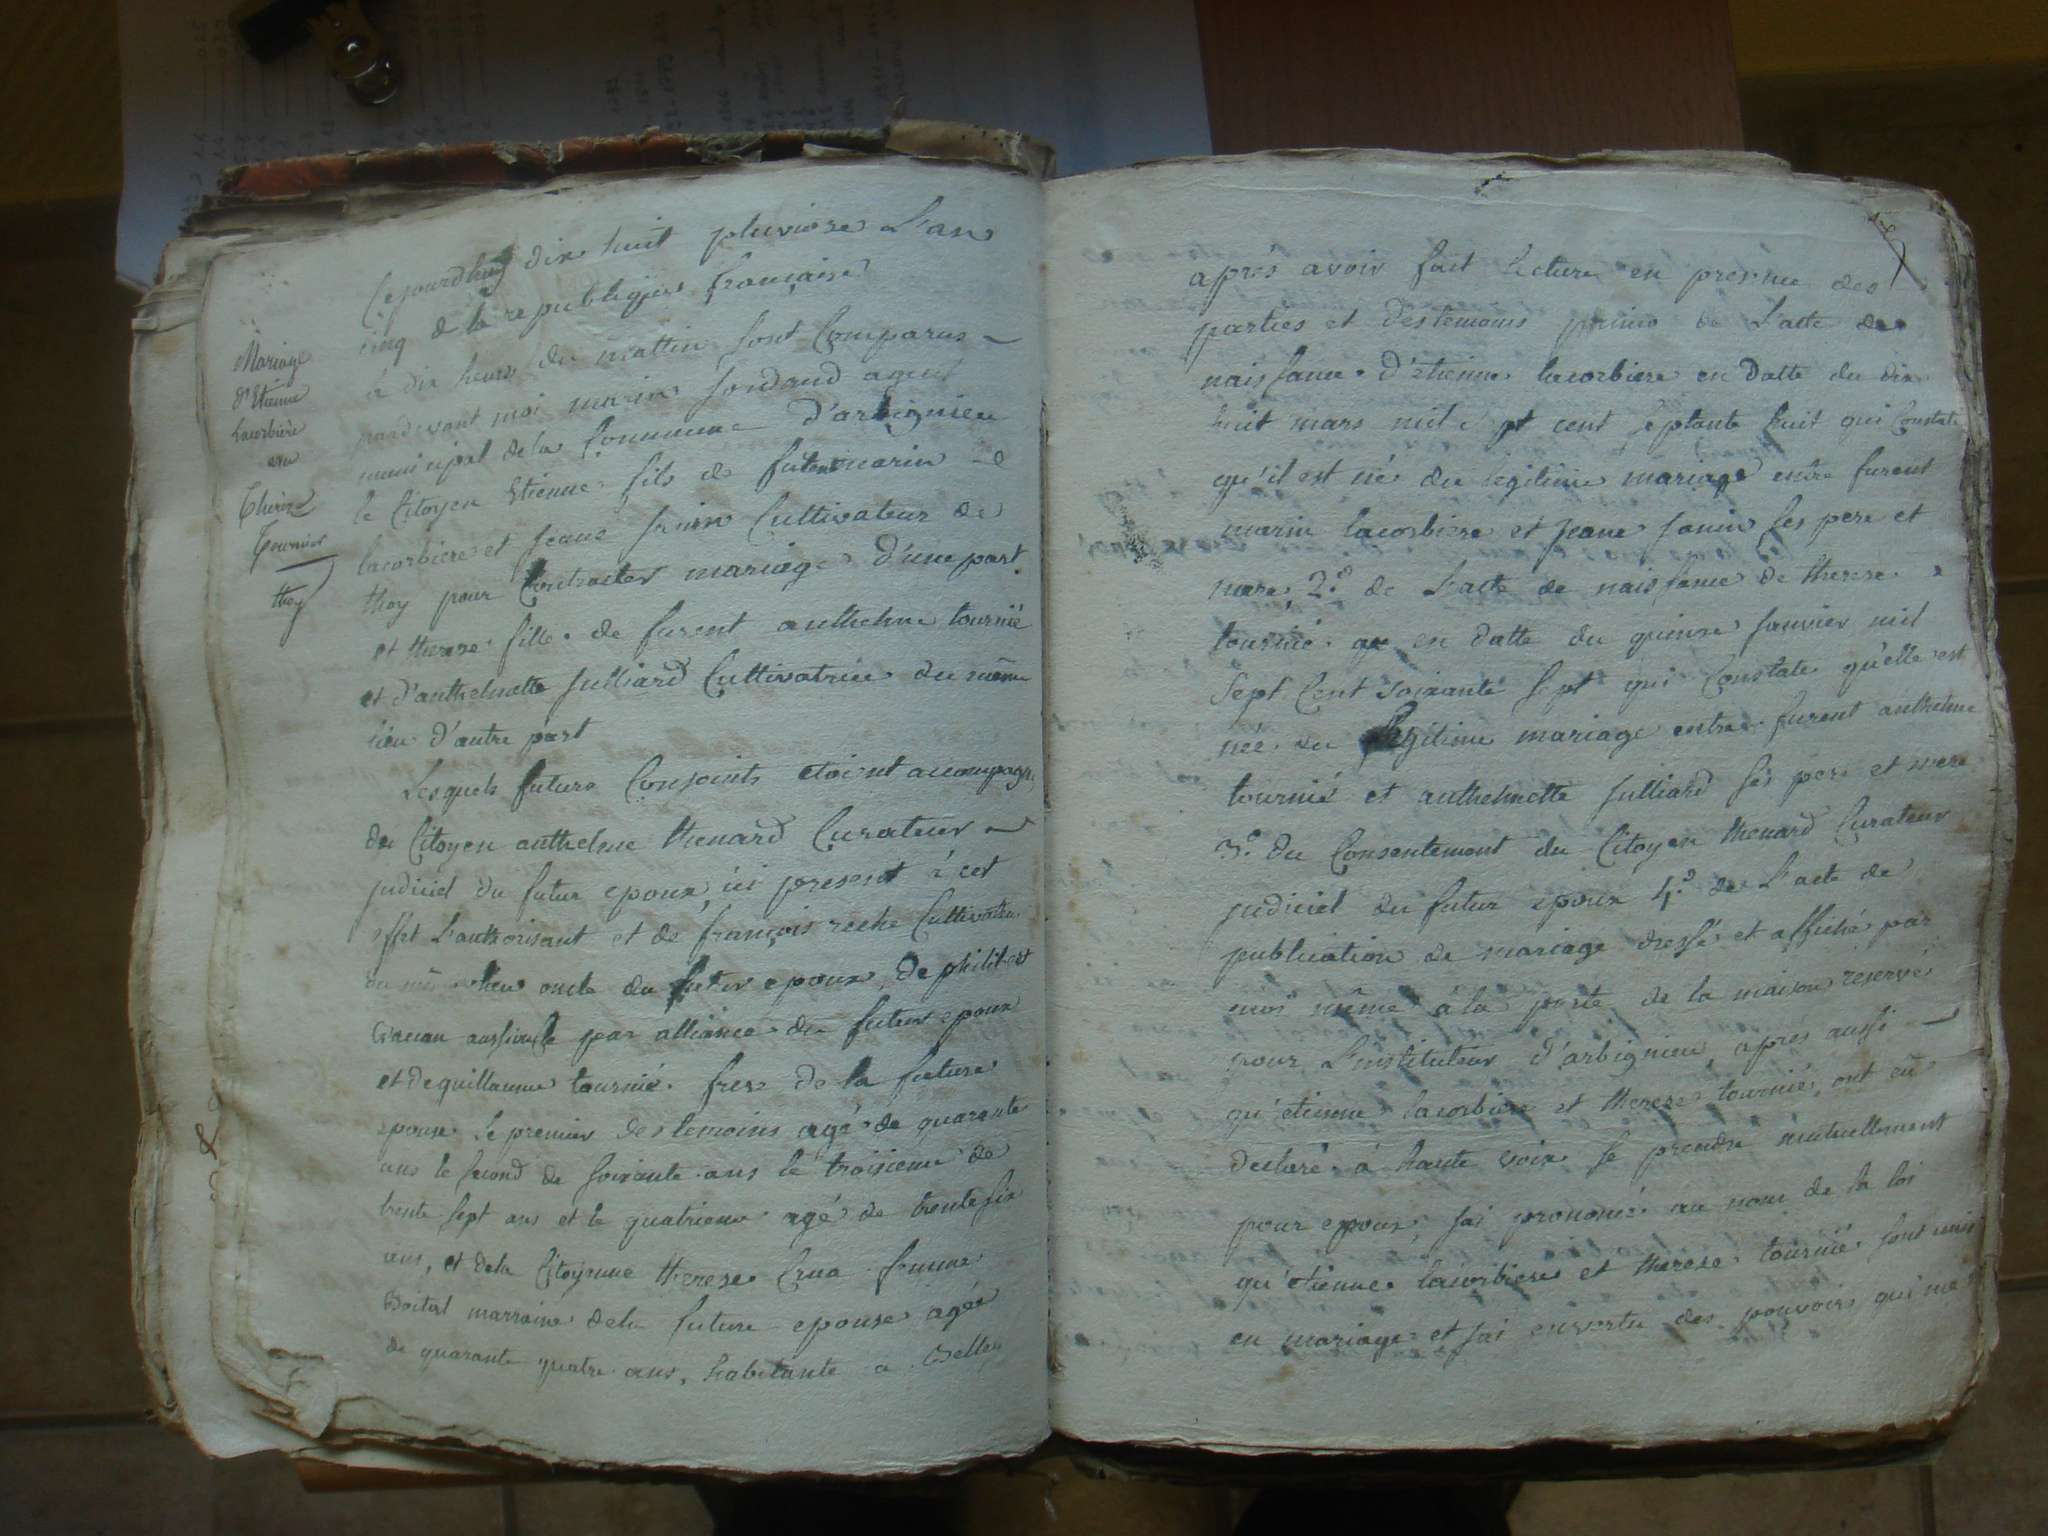 Mariage
d'Etienne
Lacorbiere
en
Therese
Tournier
thoy
Cejourdhuy dix huit pluviose L'an
cinq de la republique française
à dix heures du mattin sont Comparus
pardevant moi marin jordand agent
municipal de la Commune d'arbignieu
le Citoyen Etienne fils de marin
lacorbiere et jeane janin Cultivateur de
thoy pour Contracter mariage d'une part
et therese fille de furent anthelme tournié
et d'anthelmette julliard Cultivatrice du même
lieu d'autre part
Lesquels futurs Conjoints etoient acompagn
du Citoyen anthelme thenard Curateur
judiciel du futur epoux, ici present à cet
effet L'authorisant et de françois roche Cultivateur
du mê lieu oncle du futur epoux, de philibert
aussi oncle par alliance du futur epoux
et de guillaume tournié frere de la future
epouse. Le premier des temoins agé de quarante
ans le second de soixante ans le troisieme de
trente sept ans et le quatrieme agé de trente six
ans, et de la Citoyenne therese Crua femme
marraine dela future epouse agée
de quarante quatre ans, habitante a Belley
après avoir fait lecture en presence des
parties et des temoins primo de L'acte de
naissance d'etienne lacorbiere en datte du dix
huit mars mil sept cent septante huit qui Constate
qu'il est né du legitime mariage entre furent
marin lacorbiere et jeane janin ses pere et
mere, 2.° de L'acte de naissance de therese
tournié en datte du quinze janvier mil
Sept Cent soixante sept qui Constate qu'elle est
née du legitime mariage entre furent anthelme
tournié et anthelmette julliard ses pere et mere
3.° du Consentement du Citoyen thenard Curateur
judiciel du futur epoux 4.° de L'acte de
publication de mariage dressé et affiché par
moi même à la porte de la maison reservé
pour L'instituteur d'arbignieu, apres aussi
qu'etienne lacorbiere et therese tournié ont eû
declaré à haute voix se prendre mutuellement
pour epoux, jai prononcé au nom de la loi
qu'etienne lacorbiere et therese tournié sont unis
en mariage et jai envertu des pouvoirs qui me